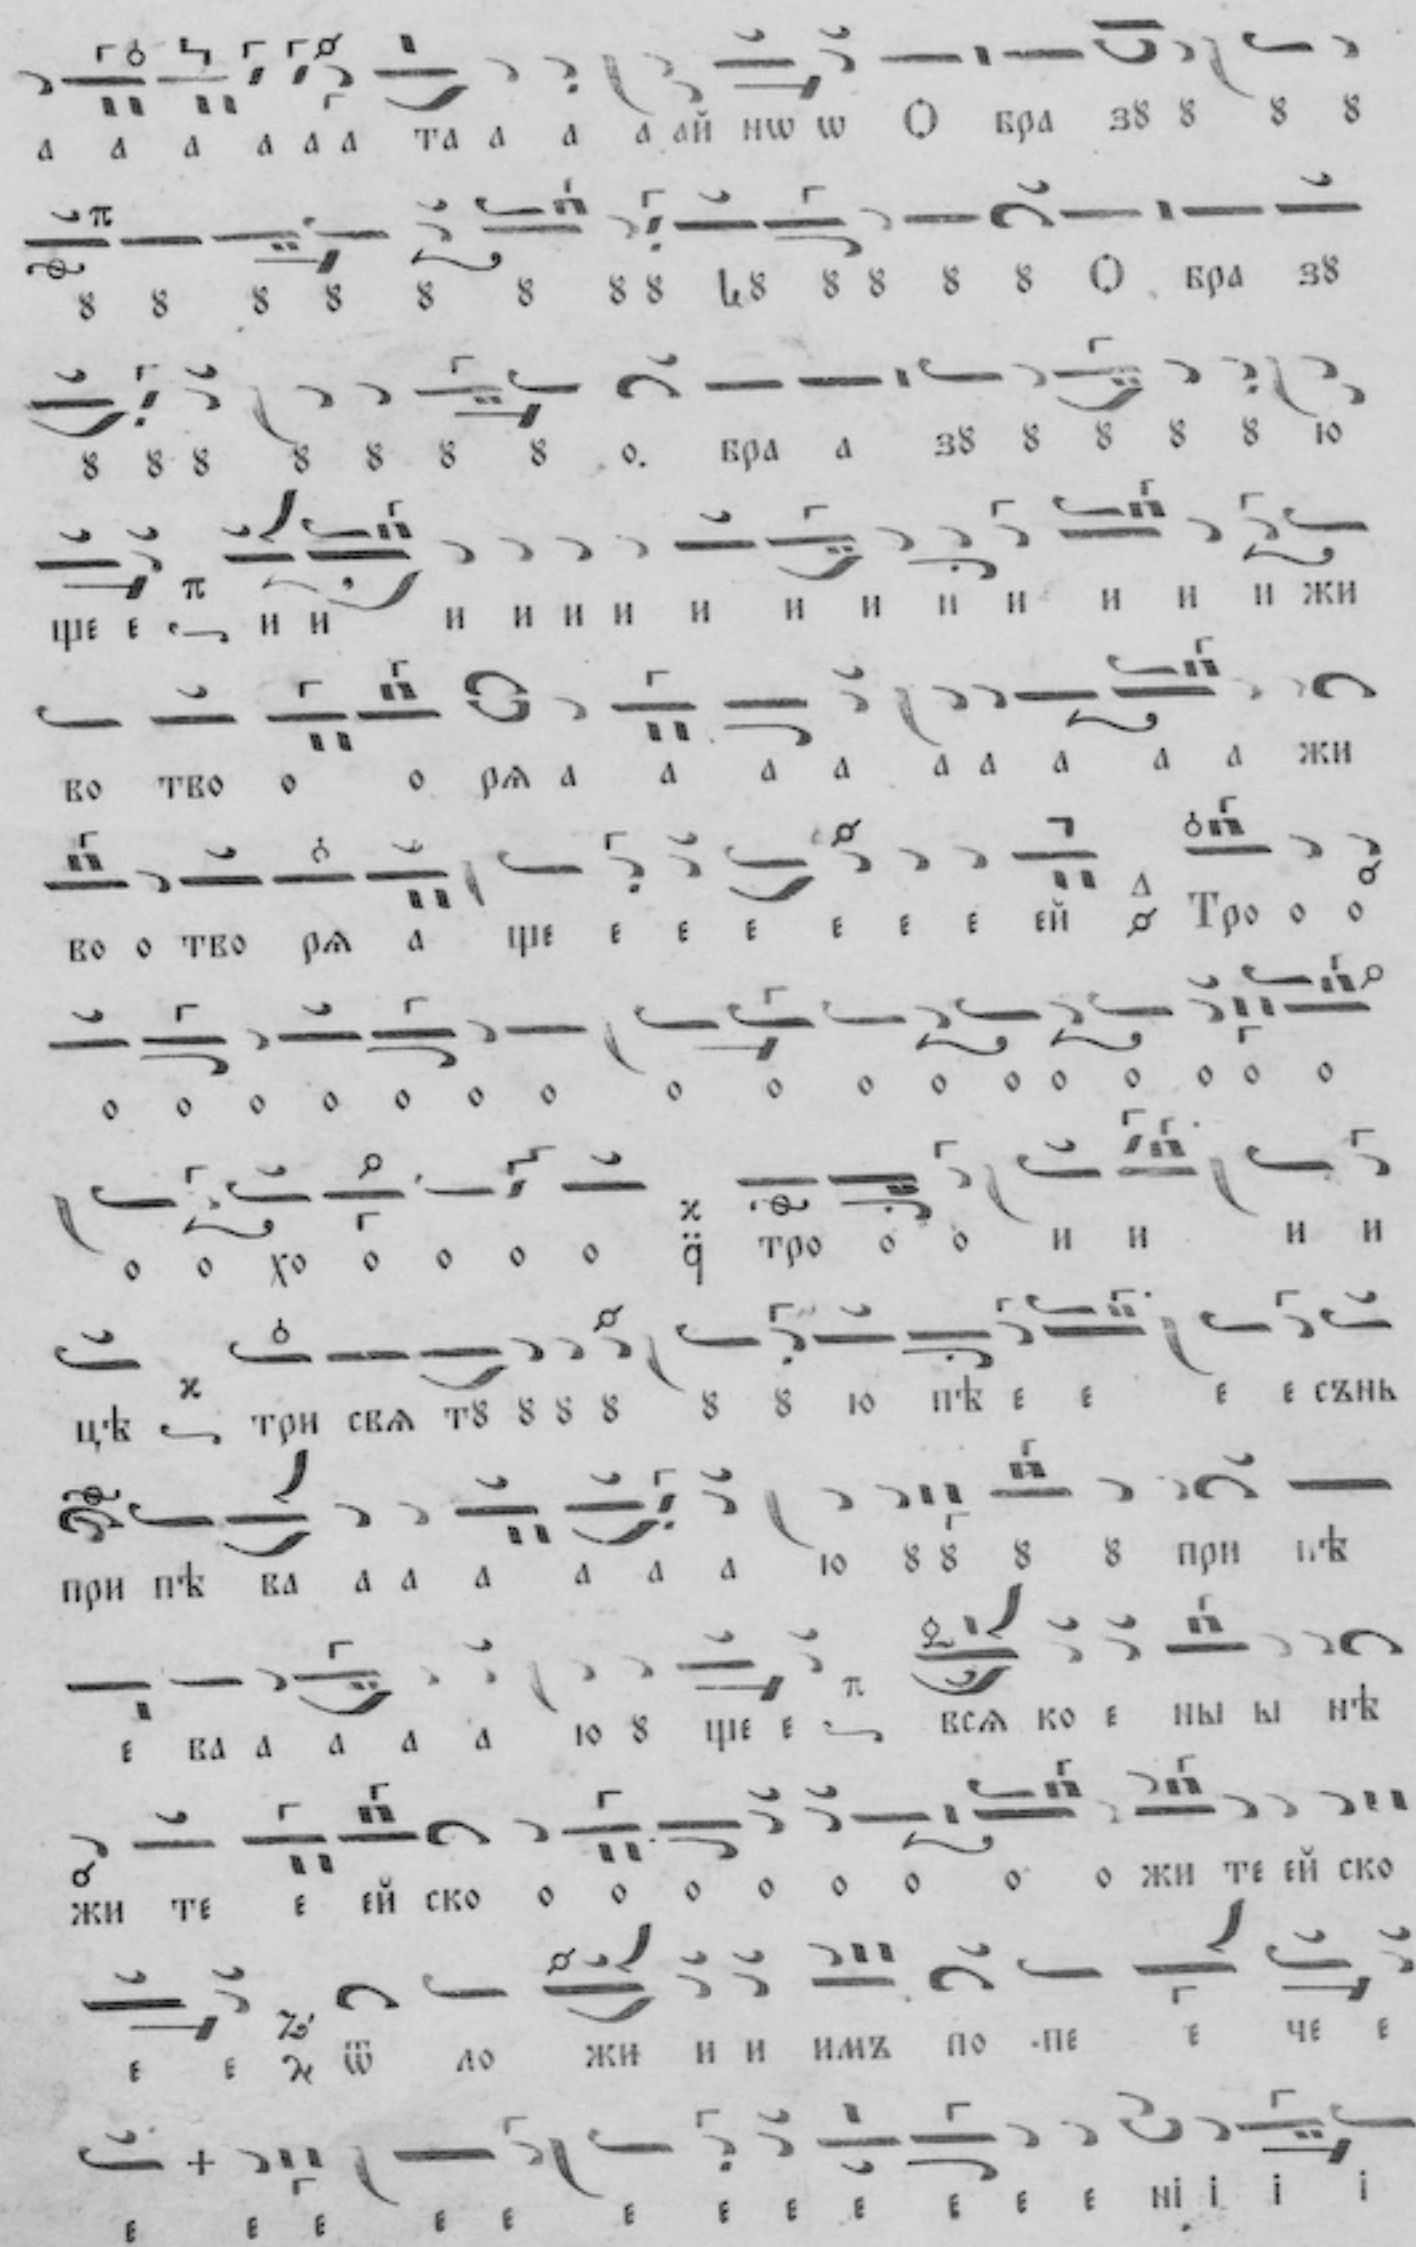 а а а а а а та а а а ай нѡ ѡ О бра зꙋ ꙋ ꙋ ꙋ
ꙋ ꙋ ꙋ ꙋ ꙋ ꙋ ꙋ ꙋ ꙋ ꙋ ꙋ ꙋ ꙋ О бра зꙋ
ꙋ ꙋ ꙋ ꙋ ꙋ ꙋ ꙋ о. бра а зꙋ ꙋ ꙋ ꙋ ꙋ ю
ще е и и и и и и и и и и и и и и жи
во тво о о рѧ а а а а а а а а а жи
во о тво рѧ а ще е е е е е е ей Тро о о
о о о о о о о о о о о о о о о о о
о о хо о о о о тро о о и и и и
цѣ три свѧ тꙋ ꙋ ꙋ ꙋ ꙋ ꙋ ю пѣ е е е е сънь
при пѣ ва а а а а а а ю ꙋ ꙋ ꙋ ꙋ при пѣ
е ва а а а а ю ꙋ ще е всѧ ко е ны ы нѣ
жи те е ей ско о о о о о о о о жи те ей ско
е е ѿ ло жи и и имъ по пе е че е
е е е е е е е е е е е е ні і і і